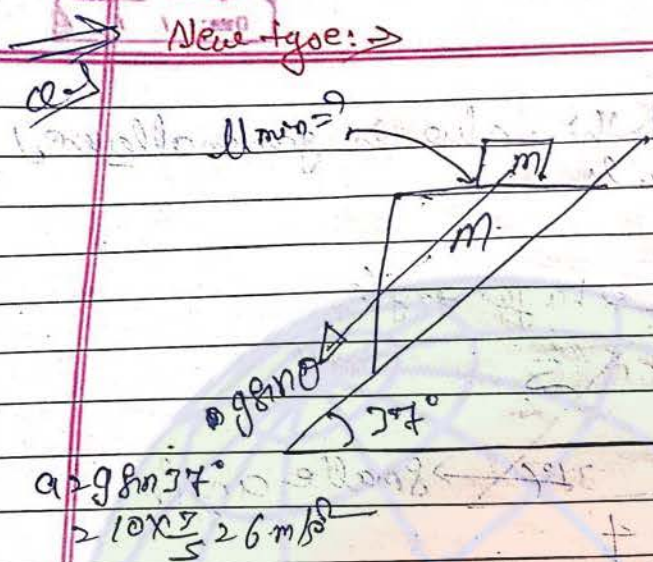 New type: →
Q→
μ min = ?
m
m
g sin θ
37°
a = g sin 37°
= 10 × 3/5 = 6 m/s²